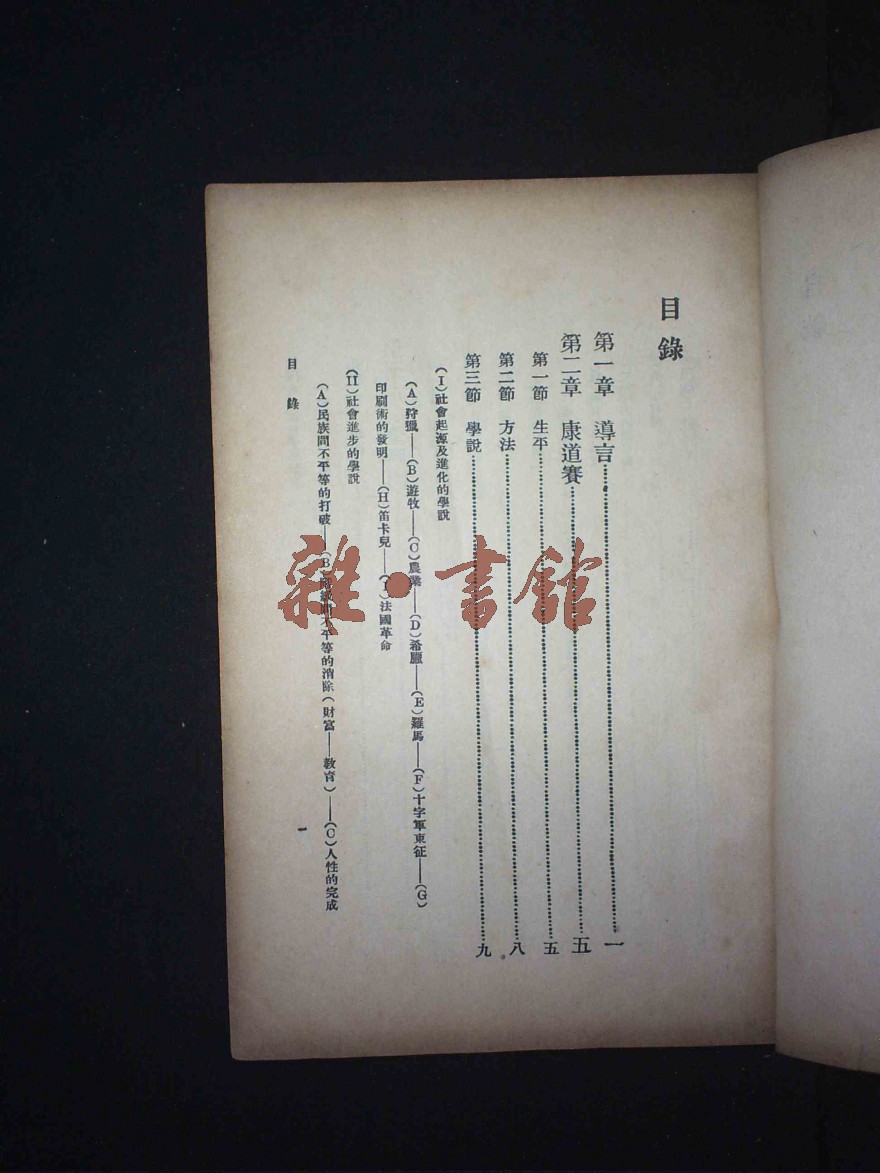 目錄
第一章 導言……一
第二章 康道賽……五
第一節 生平……五
第二節 方法……八
第三節 學說……九
(I)社會起源及進化的學說
(A)狩獵——(B)遊牧——(C)農業——(D)希臘——(E)羅馬——(F)十字軍東征——(G)
印刷術的發明——(H)笛卡兒——(I)法國革命
(II)社會進步的學說
(A)民族間不平等的打破——(B)階級間不平等的消除(財富——教育)——(C)人性的完成
目錄
一
雜·書館